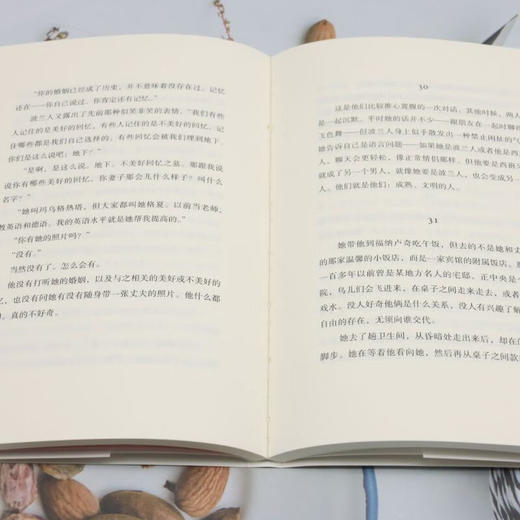 “你的婚姻已经成了历史，并不意味着没存在过。记忆
还在——你自己说过。你肯定还有记忆。”
波兰人又露出了先前那种似笑非笑的表情。“我们有些
人记住的是美好的回忆，有些人记住的是不美好的回忆。记
住哪些都是我们自己选择的。有些回忆会被我们埋到地下。
你们是这么说吧：地下？”
“是啊，是这么说。地下。不美好的回忆之墓。那跟我说
说你有哪些美好的回忆。你妻子那会儿什么样子？叫什么
名字？”
“她叫玛乌格热塔，但大家都叫她格夏。以前当老师，
教英语和德语。我的英语水平就是她帮我提高的。”
“你有她的照片吗？”
“没有。”
当然没有了。怎么会有。
他没有打听她的婚姻，以及与之相关的美好或不美好的
忆，也没有问她有没有随身带一张丈夫的照片。他什么都
问。真的不好奇。
30
这是他们比较推心置腹的一次对话。其他时候，两
一起沉默。平时她的话并不少——跟朋友在一起时聊得
飞色舞——但波兰人身上似乎散发出一种禁止闲扯的气
她告诉自己是语言问题——如果她是波兰人或者他是西
人，聊天会更轻松，像正常情侣那样。但他要是西班牙
就成了另一个男人，就像她要是波兰人，也会变成另一
人。他们就是他们：成熟、文明的人。
31
她带他到福纳卢奇吃午饭，但去的不是她和丈
的那家温馨的小饭店，而是一家宾馆的附属饭店。
一百多年以前曾是某地方名人的宅邸，正中央是一
院，鸟儿们会飞进来，在桌子之间走来走去，或者
戏水。没人好奇他俩是什么关系，没人有兴趣了解
自由的存在，无须向谁交代。
她去了趟卫生间，从昏暗处走出来后，却在门
脚步。她在等着他看向她，然后再从桌子之间款